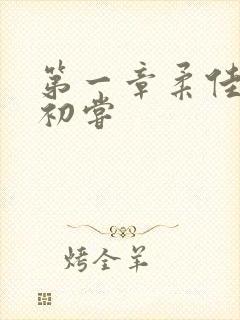 第一章柔佳
初尝
烤全羊